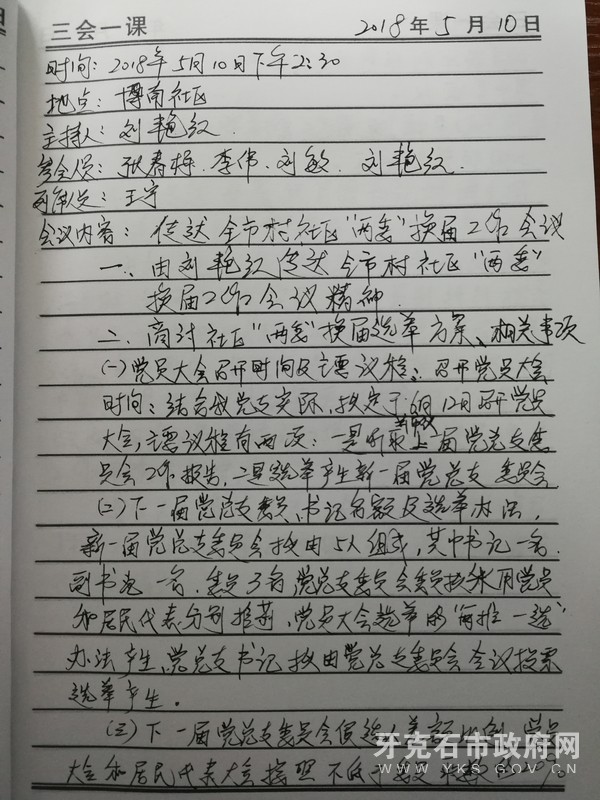 三会一课 2018年5月10日
时间：2018年5月10日下午2:30
地点：博南社区
主持人：刘艳红
参会人员：张春梅、李伟、刘敏、刘艳红
记录员：王宇
会议内容：传达全市村社区“两委”换届工作会议
一、由刘艳红传达全市村社区“两委”
换届工作会议精神
二、商讨社区“两委”换届选举方案、相关事项
(一)党员大会召开时间及主要议程：召开党员大会
时间：结合我党支实际，拟定于6月12日召开党员
大会，主要议程有两项：一是听取上一届党总支委
员会工作报告，二是选举产生新一届党总支委员会
(二)下一届党总支委员、书记名额及选举办法，
新一届党总支委员会拟由5人组成，其中书记一名，
副书记一名，委员3名，党总支委员会委员拟采用党员
和居民代表分别推荐、党员大会选举的“两推一选”
办法产生，党总支书记拟由党总支委员会会议投票
选举产生。
(三)下一届党总支委员会候选人差额比例，党员
大会和居民代表大会按照不低于
牙克石市政府网
WWW.YKS.GOV.CN